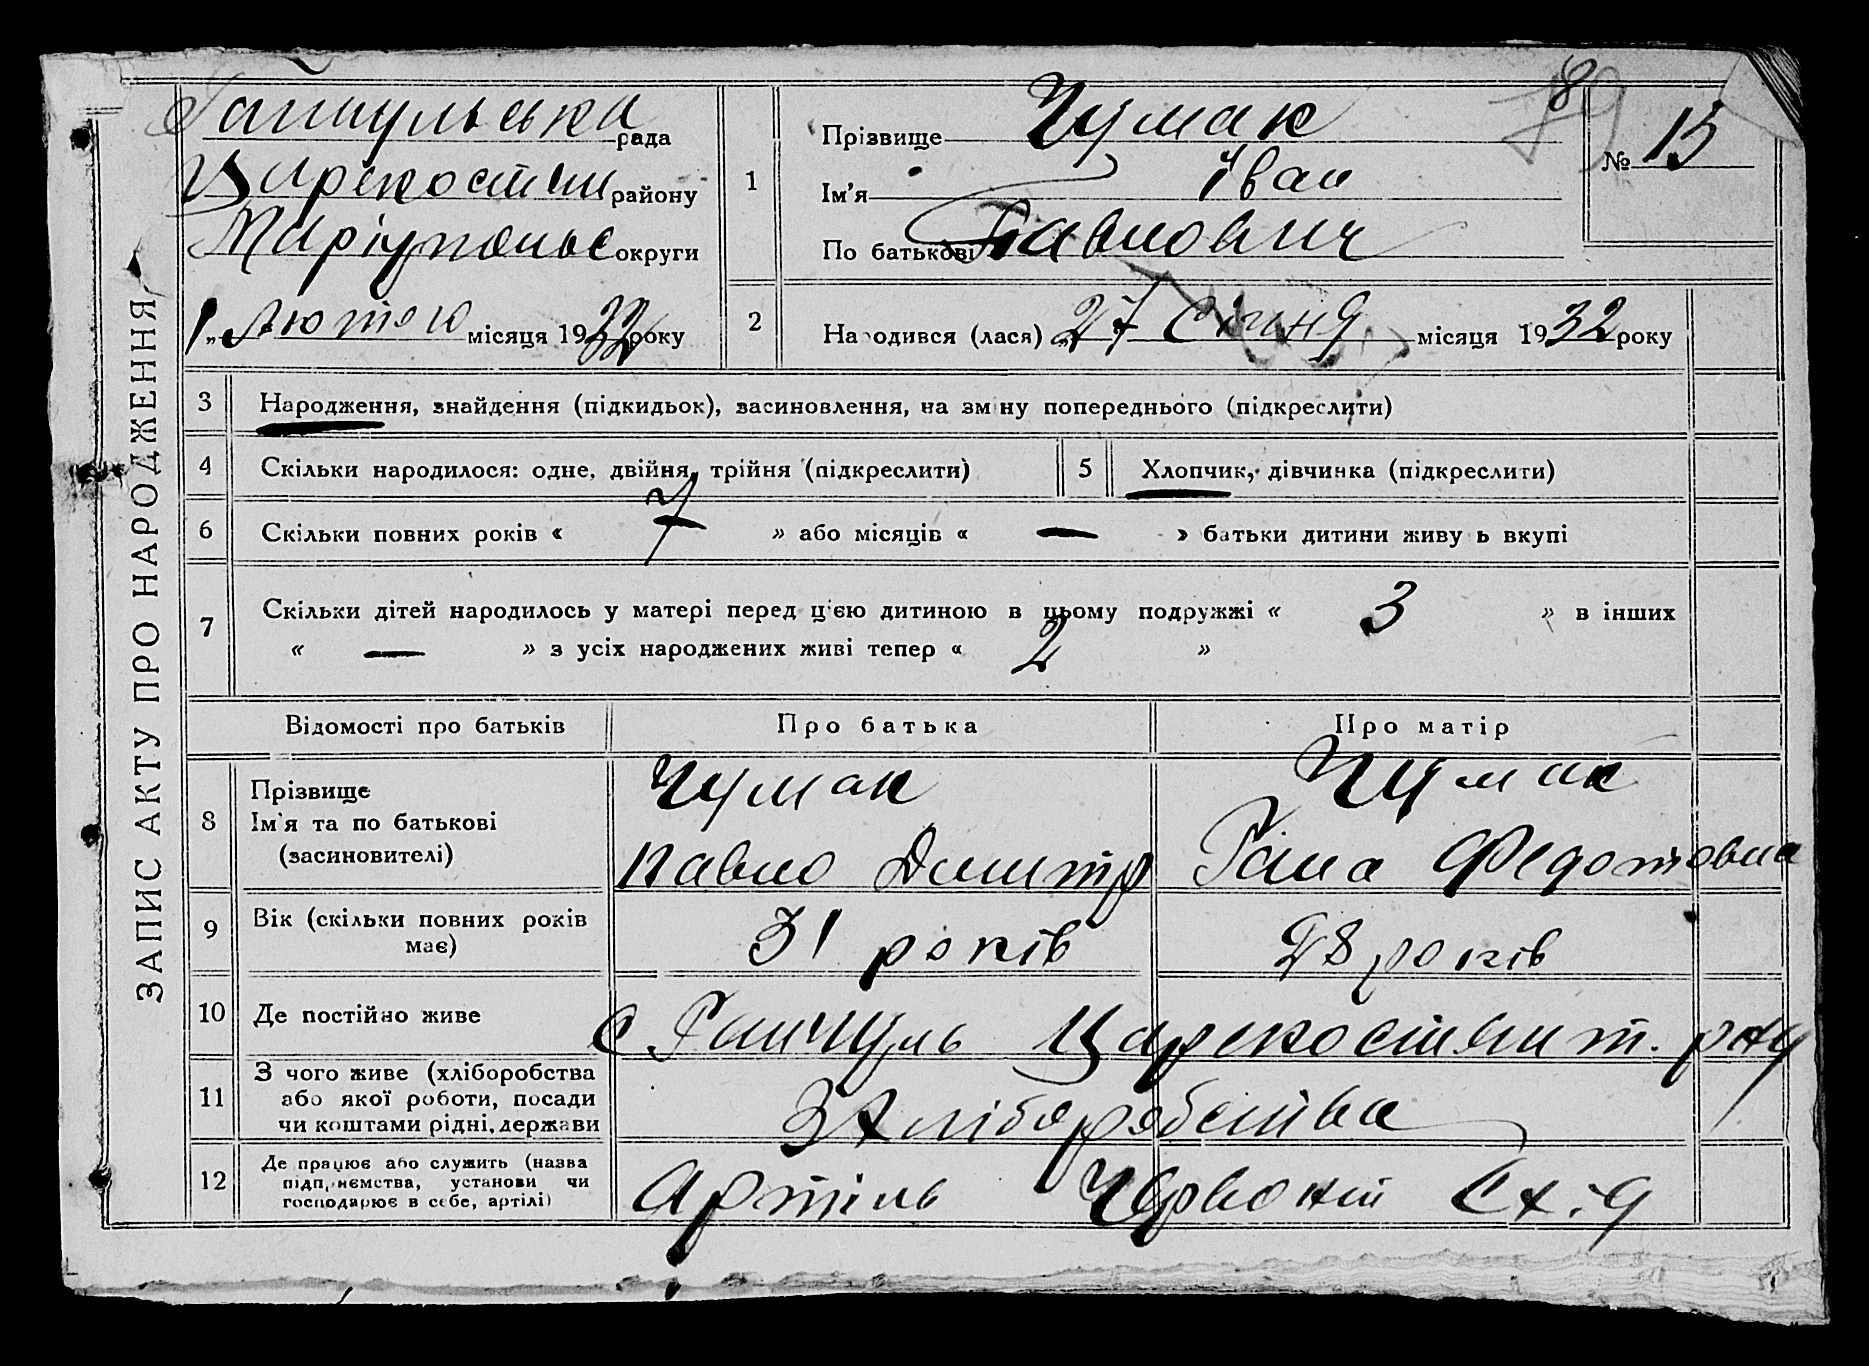 ЗАПИС АКТУ ПРО НАРОДЖЕННЯ
рада
району
округи
1 лютого місяця 1932 року
1 Прізвище Чумак
Ім'я Іван
По батькові Павлович
№ 15
89
2 Народився (лася) 27 Січня місяця 1932 року
3 Народження, знайдення (підкидьок), засиновлення, на зміну попереднього (підкреслити)
4 Скільки народилося: одне, двійня, трійня (підкреслити) 5 Хлопчик, дівчинка (підкреслити)
6 Скільки повних років « 7 » або місяців « — » батьки дитини живуть вкупі
7 Скільки дітей народилось у матері перед цією дитиною в цьому подружжі « 3 » в інших
« — » з усіх народжених живі тепер « 2 »
Відомості про батьків Про батька Про матір
8 Прізвище Чумак Чумак
Ім'я та по батькові
(засиновителі) Павло Дмитр Гана Федотовна
9 Вік (скільки повних років має) 31 років 28 років
10 Де постійно живе с Ганчуль
11 З чого живе (хліборобства
або якої роботи, посади
чи коштами рідні, держави З хліборобства
12 Де працює або служить (назва
підприємства, установи чи
господарює в себе, артілі) Артіль Червоний Схід